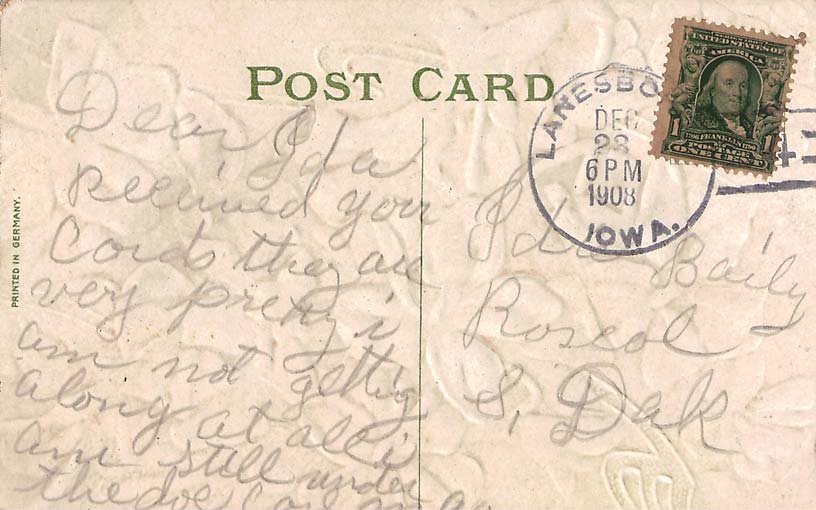 POST CARD
PRINTED IN GERMANY.
Dear Ida
Received your
Cords they are
very pretty i
am not getting
along at all i
am still under
the doc
LANESBO
DEC
23
6 PM
1908
IOWA.
UNITED STATES OF
AMERICA
1706 FRANKLIN 1790
POSTAGE
1 ONE CENT 1
Ida Baily
Roscol
S, Dak